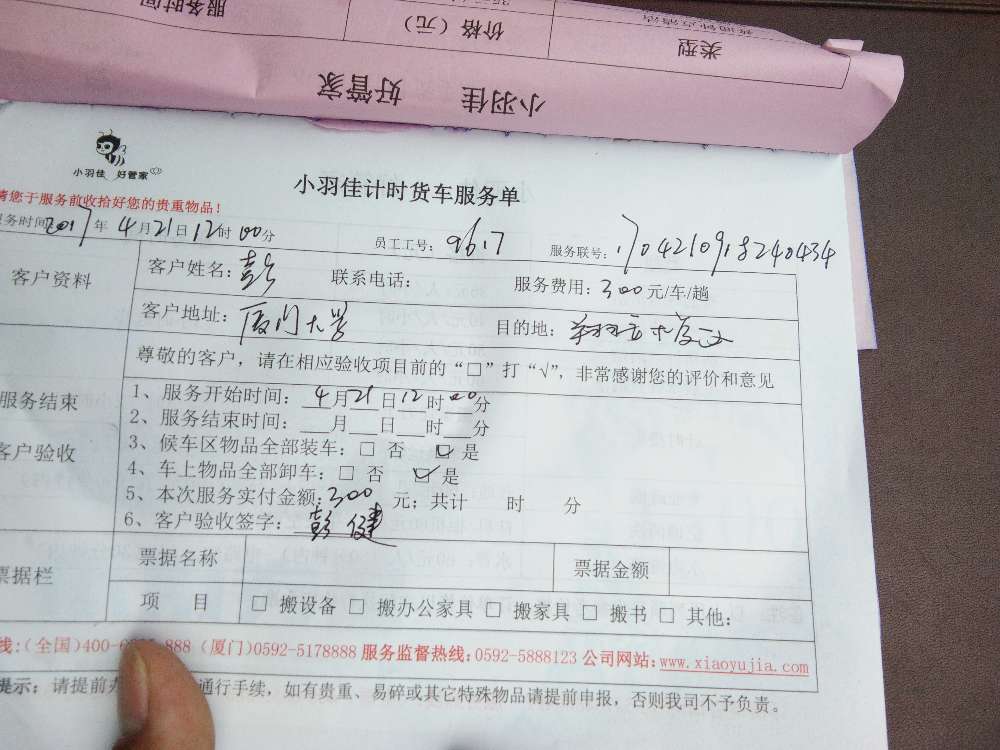 服务时间
价格（元）
类型
小羽佳 好管家
小羽佳 好管家
小羽佳计时货车服务单
请您于服务前收拾好您的贵重物品！
务时间2017年4月21日12时00分 员工工号：9617 服务联号：
客户资料
客户姓名：彭 联系电话： 服务费用：300元/车/趟
客户地址：厦门大学 目的地：
尊敬的客户，请在相应验收项目前的“□”打“√”，非常感谢您的评价和意见
服务结束
客户验收
1、服务开始时间：4月21日12时00分
2、服务结束时间：___月___日___时___分
3、候车区物品全部装车：□ 否 ☑ 是
4、车上物品全部卸车：□ 否 ☑ 是
5、本次服务实付金额：300 元；共计 时 分
6、客户验收签字：彭健
票据栏
票据名称 票据金额
项 目 □ 搬设备 □ 搬办公家具 □ 搬家具 □ 搬书 □ 其他：
线：（全国）400- 888（厦门）0592-5178888 服务监督热线：0592-5888123 公司网站：www.xiaoyujia.com
提示：请提前办 通行手续，如有贵重、易碎或其它特殊物品请提前申报，否则我司不予负责。